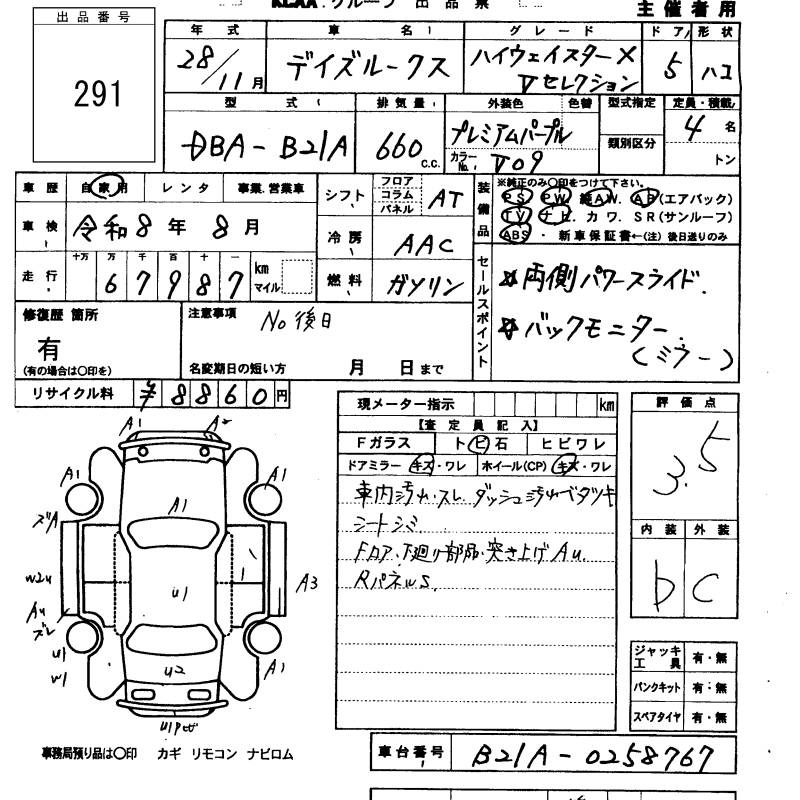 KCAA.グループ 出品票
主催者用
出品番号
291
年式 車名 グレード ドア 形状
28/11月 デイズルークス ハイウェイスターX Vセレクション 5 ハコ
型式 排気量 外装色 色替 型式指定 定員・積載
DBA-B21A 660 c.c. プレミアムパープル カラーNo. V09 類別区分 4名 トン
車歴 自家用 レンタ 事業.営業車
車検 令和8年8月
走行 十万 万 千 百 十 一 67987 km マイル
シフト フロア コラム パネル AT
冷房 AAC
燃料 ガソリン
装備品 ※純正のみ○印をつけて下さい。
PS PW 純AW. AB(エアバッグ)
TV ナビ. カワ. SR(サンルーフ)
ABS ・新車保証書←(注)後日送りのみ
セールスポイント
☆両側パワースライド.
☆バックモニター
(ミラー)
修復歴 箇所
有
(有の場合は○印を)
注意事項
No後日
名変期日の短い方 月 日まで
リサイクル料 ¥8860円
現メーター指示 km
【査定員記入】
Fガラス トビ石 ヒビワレ
ドアミラー キズ・ワレ ホイール(CP) キズ・ワレ
車内汚れ.スレ.ダッシュ汚れベタツキ
シートシミ
Fロア.下廻り部品.突き上げAu.
RパネルS.
評価点
3.5
内装 外装
D C
ジャッキ工具 有・無
パンクキット 有・無
スペアタイヤ 有・無
A1 A2
A1 A1
A1
ズA
W2u
U1
A3
Au
ズレ
U1
W1
U2
A1
事務局預り品は○印 カギ リモコン ナビロム
車台番号 B21A-0258767